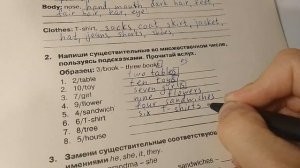 Body: nose, hand, mouth, dark hair, feet,
fair hair, ear, eye
Clothes: T-shirt, socks, coat, skirt, jacket,
hat, jeans, shorts, shoes,
2. Напиши существительные во множественном числе,
пользуясь подсказками. Прочитай вслух.
Образец: 3/book - three books
1. 2/table two tables
2. 10/toy ten toys
3. 7/girl seven girls
4. 9/flower nine flowers
5. 4/sandwich four sandwiches
6. 6/T-shirt six T-shirts
7. 8/tree
8. 5/house
3. Замени существительные соответствующ
имениями he, she, it, they.
grandma – she sandwiches –